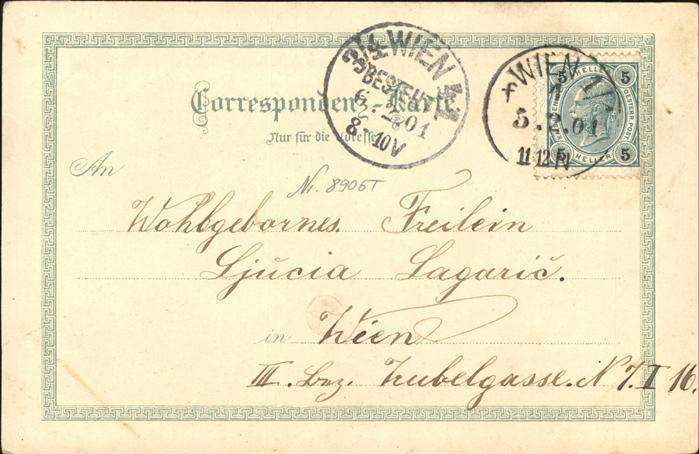 Correspondenz-Karte
Nur für die Adresse
3/4 WIEN 41
BESTELLT
6. 2. 01
8-10V
WIEN 1/1
5. 2. 01
11-12N
5 HELLER 5
5 HELLER 5
An
Nr. 8906T
Wohlgebornes Freilein
Ljúcia Lagarič.
in Wien
III. Bez. Kubelgasse. N 7. I 16.